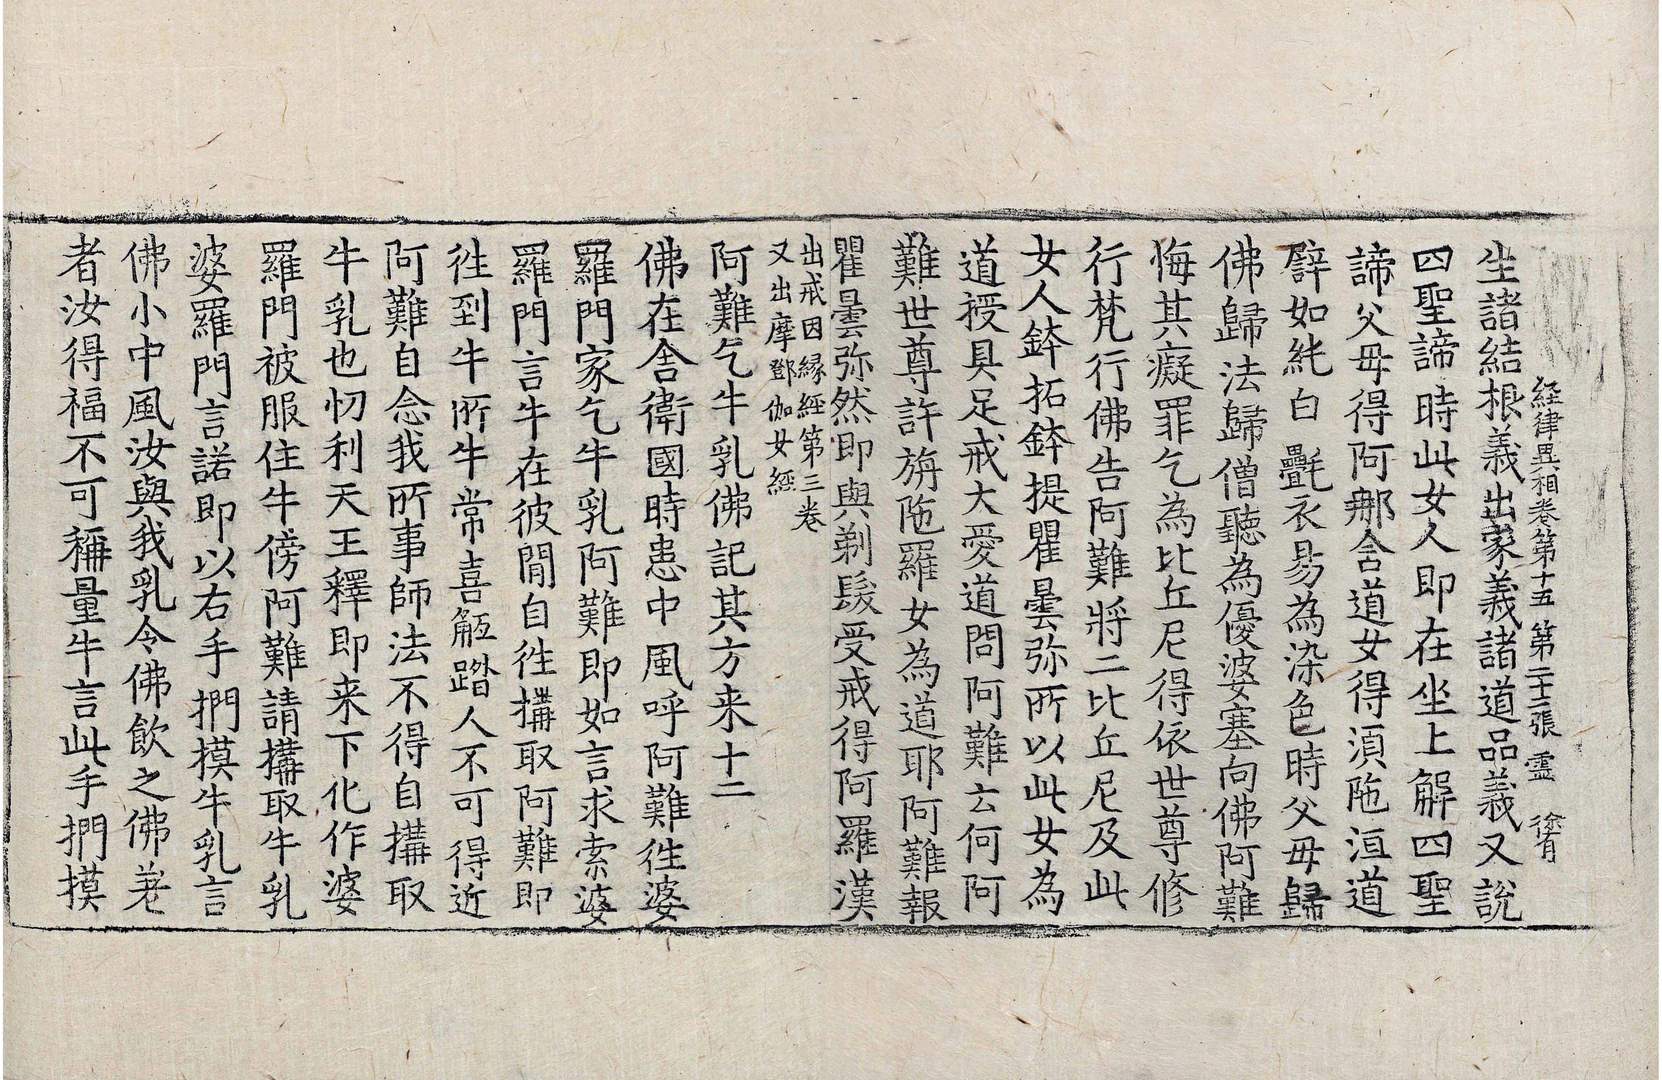 経律異相卷第十五 第二十三張 靈 徐有
生諸結根義出家義諸道品義又說
四聖諦時此女人即在坐上解四聖
諦父毋得阿那含道女得湏陁洹道
譬如純白㲲衣易為染色時父毋歸
佛歸法歸僧聽為優婆塞向佛阿難
悔其癡罪乞為比丘尼得依世尊修
行梵行佛告阿難將二比丘尼及此
女人鉢拓鉢提瞿曇弥所以此女為
道授具足戒大愛道問阿難云何阿
難世尊許旃陁羅女為道耶阿難報
瞿曇弥然即與剃髮受戒得阿羅漢
出戒因縁經第三卷
又出摩鄧伽女經
阿難乞牛乳佛記其方来十二
佛在舎衛國時患中風呼阿難徃婆
羅門家乞牛乳阿難即如言求索婆
羅門言牛在彼閒自徃搆取阿難即
徃到牛所牛常喜觝踏人不可得近
阿難自念我所事師法不得自搆取
牛乳也忉利天王釋即来下化作婆
羅門被服住牛傍阿難請搆取牛乳
婆羅門言諾即以右手捫摸牛乳言
佛小中風汝與我乳令佛飲之佛差
者汝得福不可稱量牛言此手捫摸